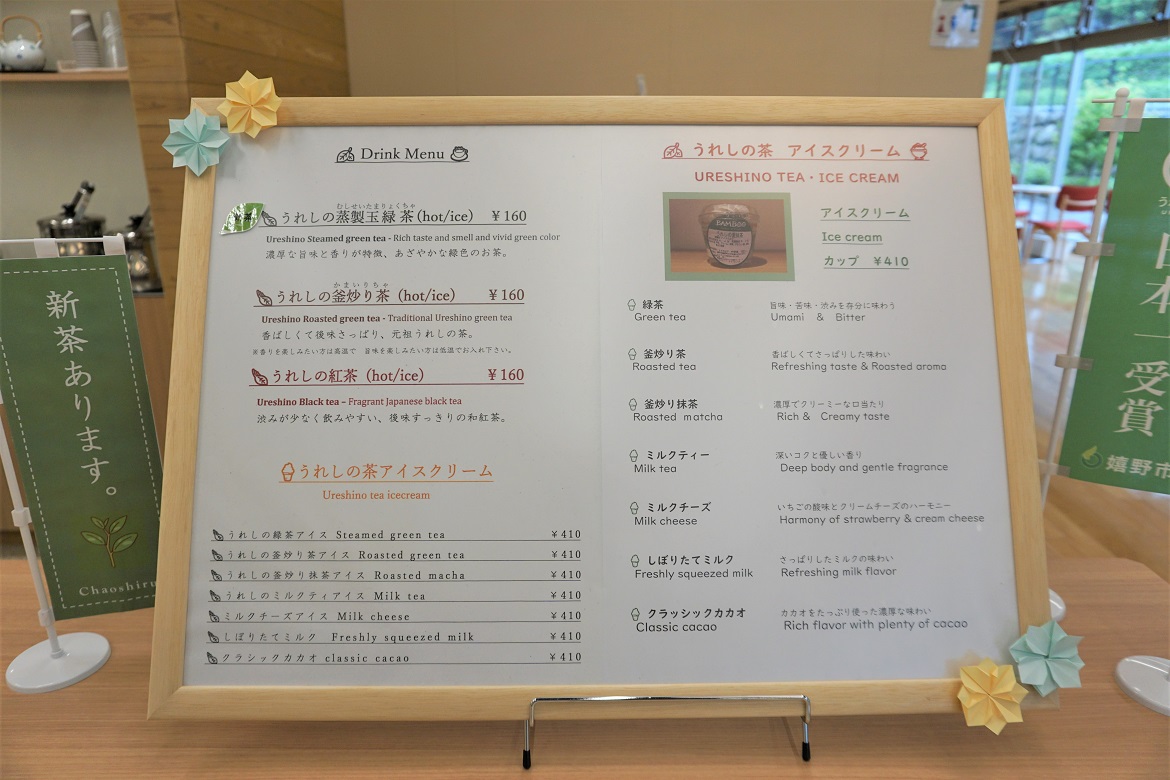 Drink Menu
むしせいたまりょくちゃ
うれしの蒸製玉緑茶(hot/ice) ¥160
Ureshino Steamed green tea - Rich taste and smell and vivid green color
濃厚な旨味と香りが特徴、あざやかな緑色のお茶。
かまいりちゃ
うれしの釜炒り茶 (hot/ice) ¥160
Ureshino Roasted green tea - Traditional Ureshino green tea
香ばしくて後味さっぱり、元祖うれしの茶。
※香りを楽しみたい方は高温で 旨味を楽しみたい方は低温でお入れ下さい。
うれしの紅茶 (hot/ice) ¥160
Ureshino Black tea – Fragrant Japanese black tea
渋みが少なく飲みやすい、後味すっきりの和紅茶。
うれしの茶アイスクリーム
Ureshino tea icecream
うれしの緑茶アイス Steamed green tea ¥410
うれしの釜炒り茶アイス Roasted green tea ¥410
うれしの釜炒り抹茶アイス Roasted macha ¥410
うれしのミルクティアイス Milk tea ¥410
ミルクチーズアイス Milk cheese ¥410
しぼりたてミルク Freshly squeezed milk ¥410
クラシックカカオ classic cacao ¥410
うれしの茶 アイスクリーム
URESHINO TEA・ICE CREAM
BAMBOO
アイスクリーム
Ice cream
カップ ¥410
緑茶 旨味・苦味・渋みを存分に味わう
Green tea Umami & Bitter
釜炒り茶 香ばしくてさっぱりした味わい
Roasted tea Refreshing taste & Roasted aroma
釜炒り抹茶 濃厚でクリーミーな口当たり
Roasted matcha Rich & Creamy taste
ミルクティー 深いコクと優しい香り
Milk tea Deep body and gentle fragrance
ミルクチーズ いちごの酸味とクリームチーズのハーモニー
Milk cheese Harmony of strawberry & cream cheese
しぼりたてミルク さっぱりしたミルクの味わい
Freshly squeezed milk Refreshing milk flavor
クラッシックカカオ カカオをたっぷり使った濃厚な味わい
Classic cacao Rich flavor with plenty of cacao
新茶あります。
Chaoshiru
日本一受賞
嬉野市